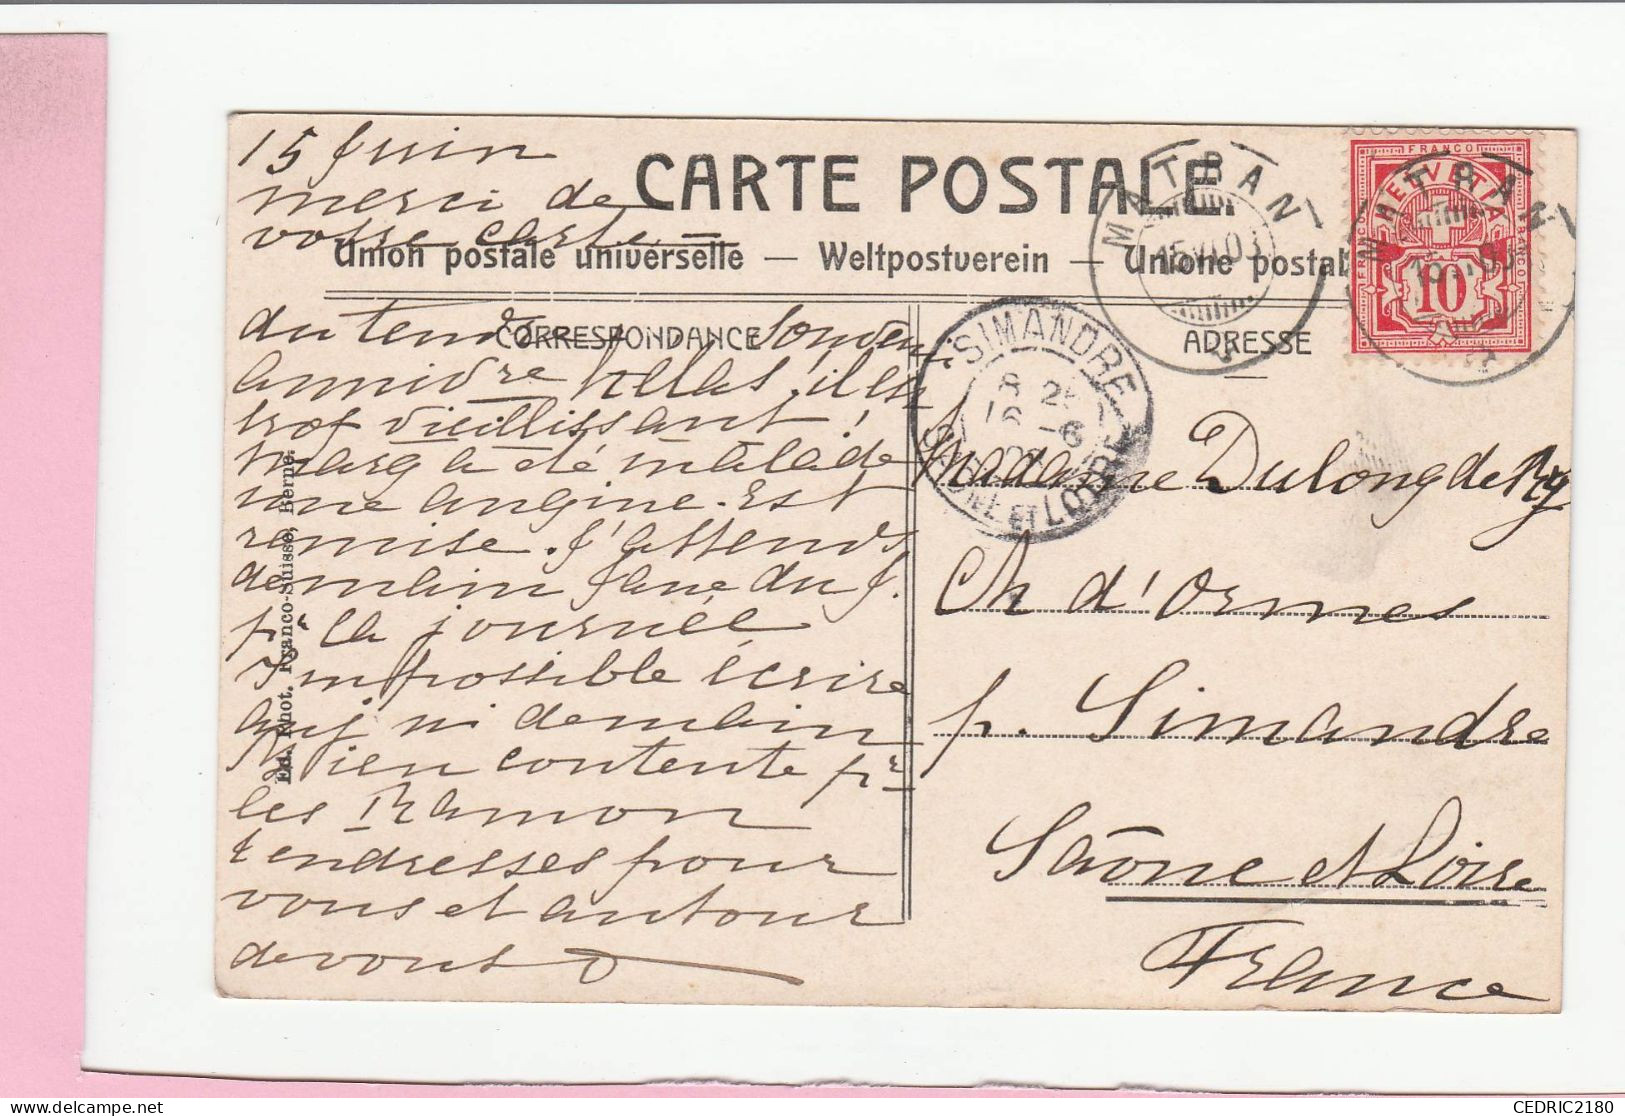 15 Juin
merci de
votre carte
CARTE POSTALE.
Union postale universelle — Weltpostverein — Unione postal
CORRESPONDANCE
ADRESSE
du tendre souvenir
hélas! il est
trop vieillissant!
Marg a été malade
une angine. Est
remise. J'attends
demain Jane du J.
pr la journée
Impossible écrire
auj ni demain
Bien contente pr
les Ramon
tendresses pour
vous et autour
de vous
Ed. Phot. Franco-Suisse, Berne.
MATRAN
15 VI 03
FRANCO
HELVETIA
FRANCO
10
MATRAN
SIMANDRE
8 25
16 -6
SAONE ET LOIRE
Madame Dulong de Ry
Ch d'Ormes
p. Simandre
Saône et Loire
France
CEDRIC2180